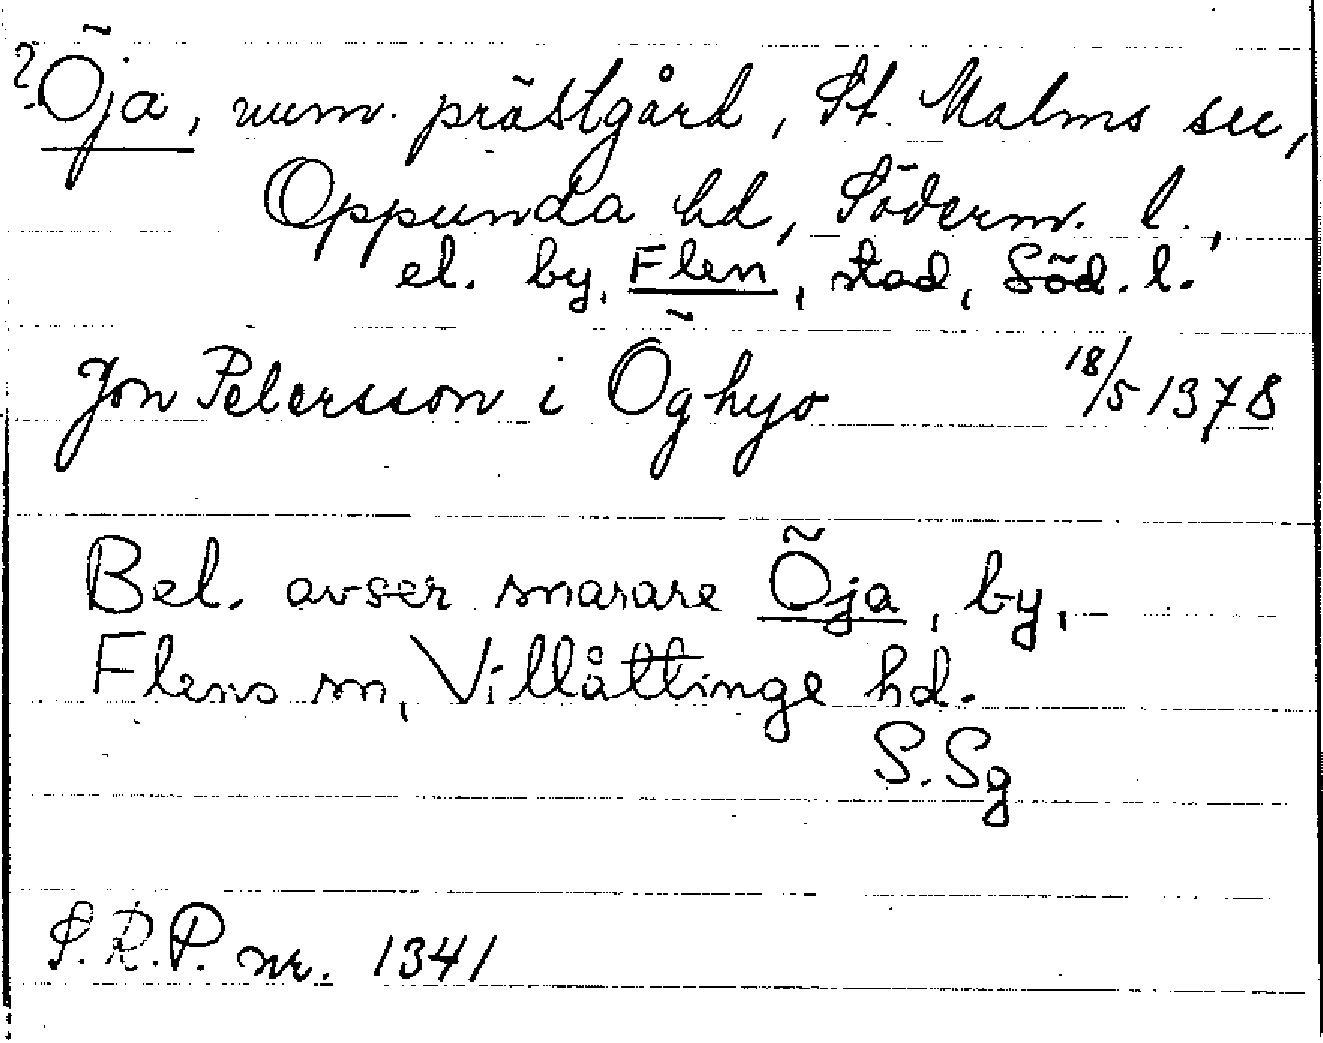 ? Öja, num. prästgård, St. Malms sn,
Oppunda hd, Söderm. l.,
el. by, Flen, stad, Söd. l.
Jon Petersson i Öghyo 18/5 1378
Bel. avser snarare Öja, by,
Flens sn, Villåttinge hd.
S. Sg
S.R.P. nr. 1341